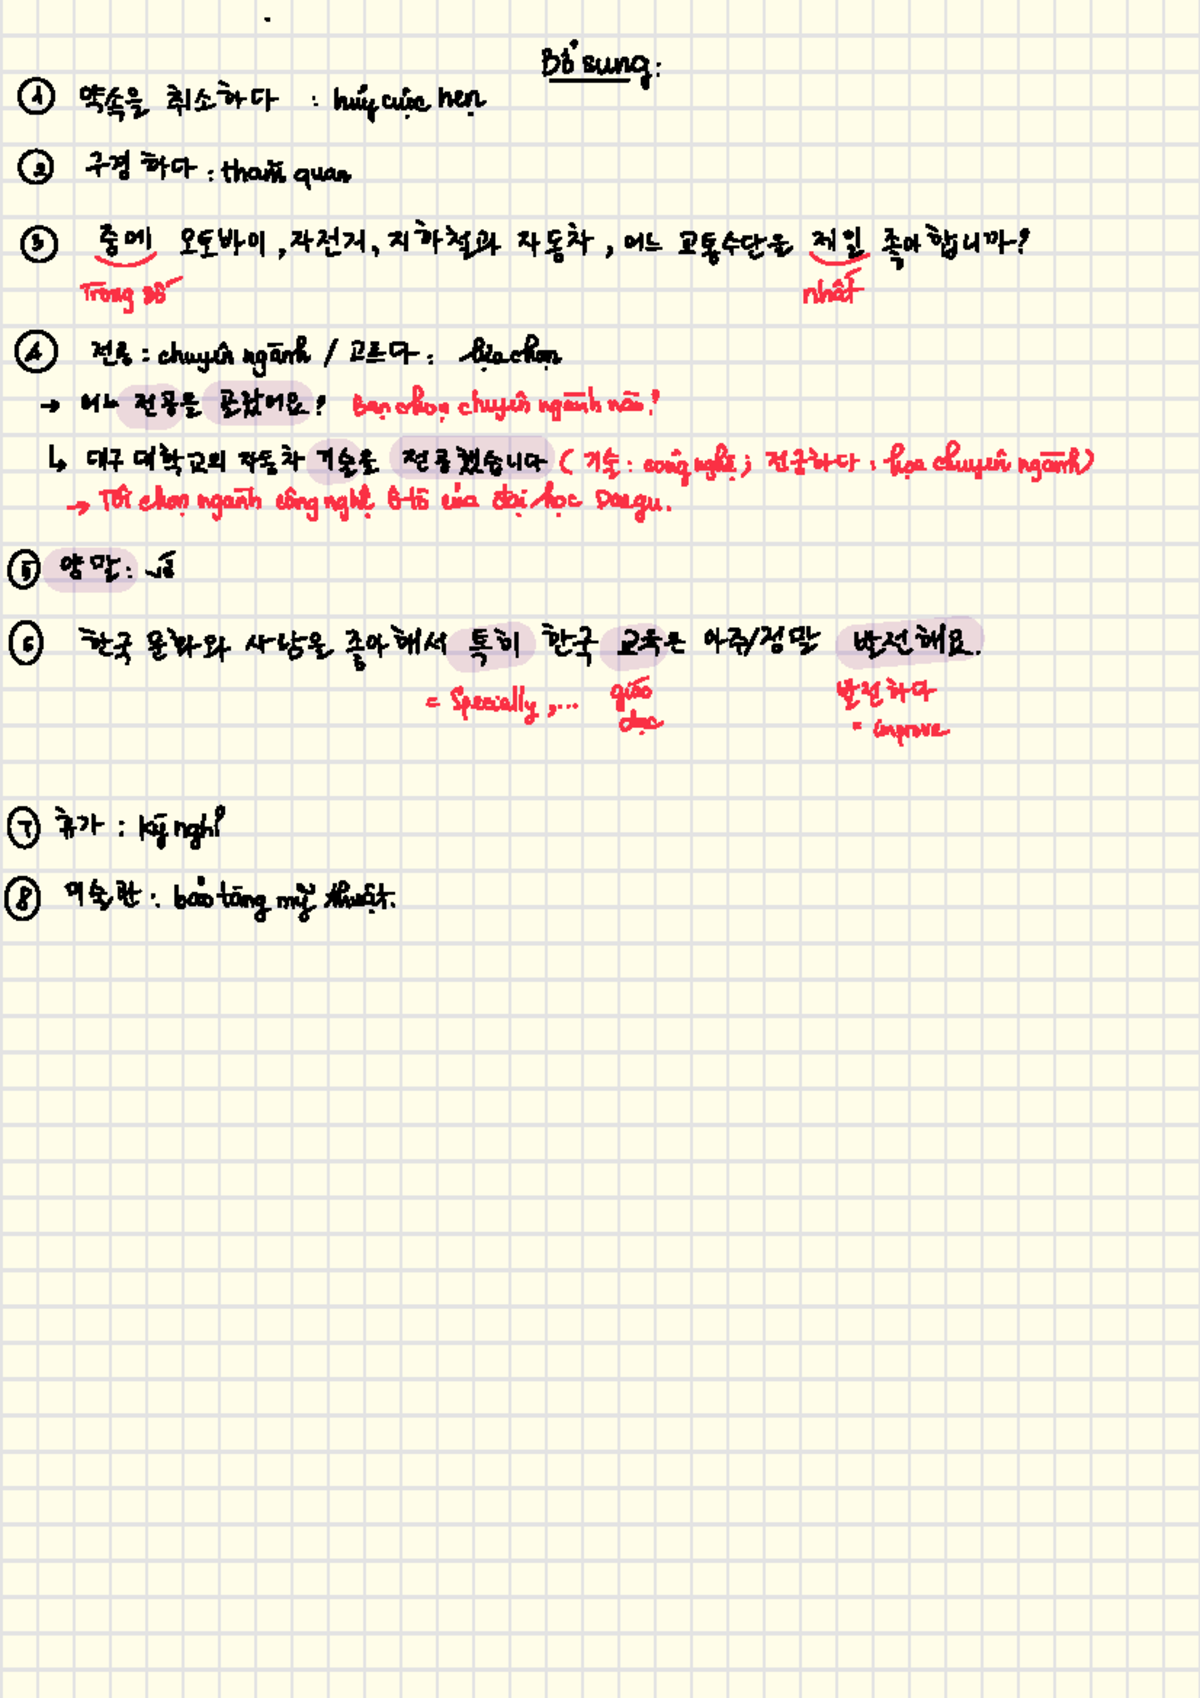 Bổ sung:
① 약속을 취소하다 : hủy cuộc hẹn
② 구경하다 : tham quan
③ 중에 오토바이, 자전거, 지하철과 자동차, 어느 교통수단을 제일 좋아합니까?
Trong số nhất
④ 전공 : chuyên ngành / 고르다 : lựa chọn
→ 어느 전공을 골랐어요? Bạn chọn chuyên ngành nào?
↳ 대구 대학교의 자동차 기술을 전공했습니다 (기술 : công nghệ ; 전공하다 : học chuyên ngành)
→ Tôi chọn ngành công nghệ ô tô của đại học Daegu.
⑤ 양말 :
⑥ 한국 문화와 사람을 좋아해서 특히 한국 교육은 아주/정말 발전해요.
= Specially ,... giáo dục 발전하다
= improve
⑦ 휴가 : kỳ nghỉ
⑧ 미술관 : bảo tàng mỹ thuật.